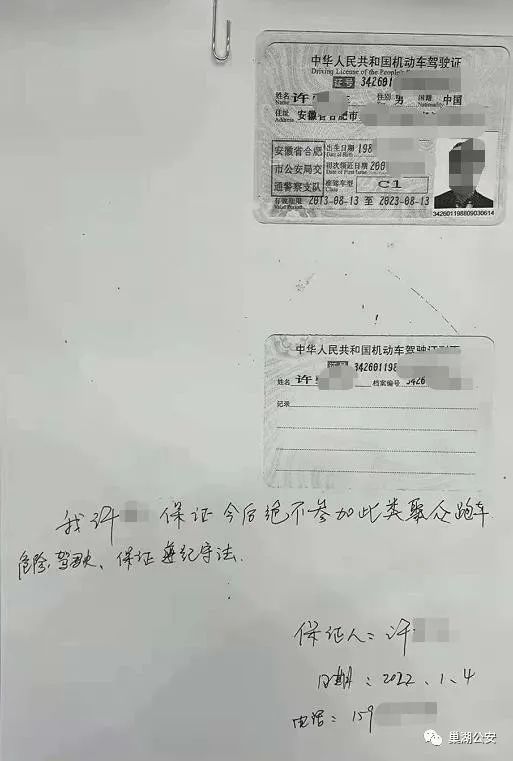 中华人民共和国机动车驾驶证
Driving License of the People's
证号 342601
姓名 许 性别 男 国籍 中国
Name Nationality
住址 安徽省合肥市
Address
安徽省合肥 出生日期 198
Date of Birth
市公安局交 初次领证日期 200
Date of First Issue
通警察支队 准驾车型 C1
Class
有效期限 2013-08-13 至 2023-08-13
Valid Period
中华人民共和国机动车驾驶证副页
证号 342601198
姓名 许 档案编号 3426
记录
我许 保证今后绝不参加此类聚众跑车
危险驾驶、保证遵纪守法.
保证人：许
日期：2022.1.4
电话：159
巢湖公安